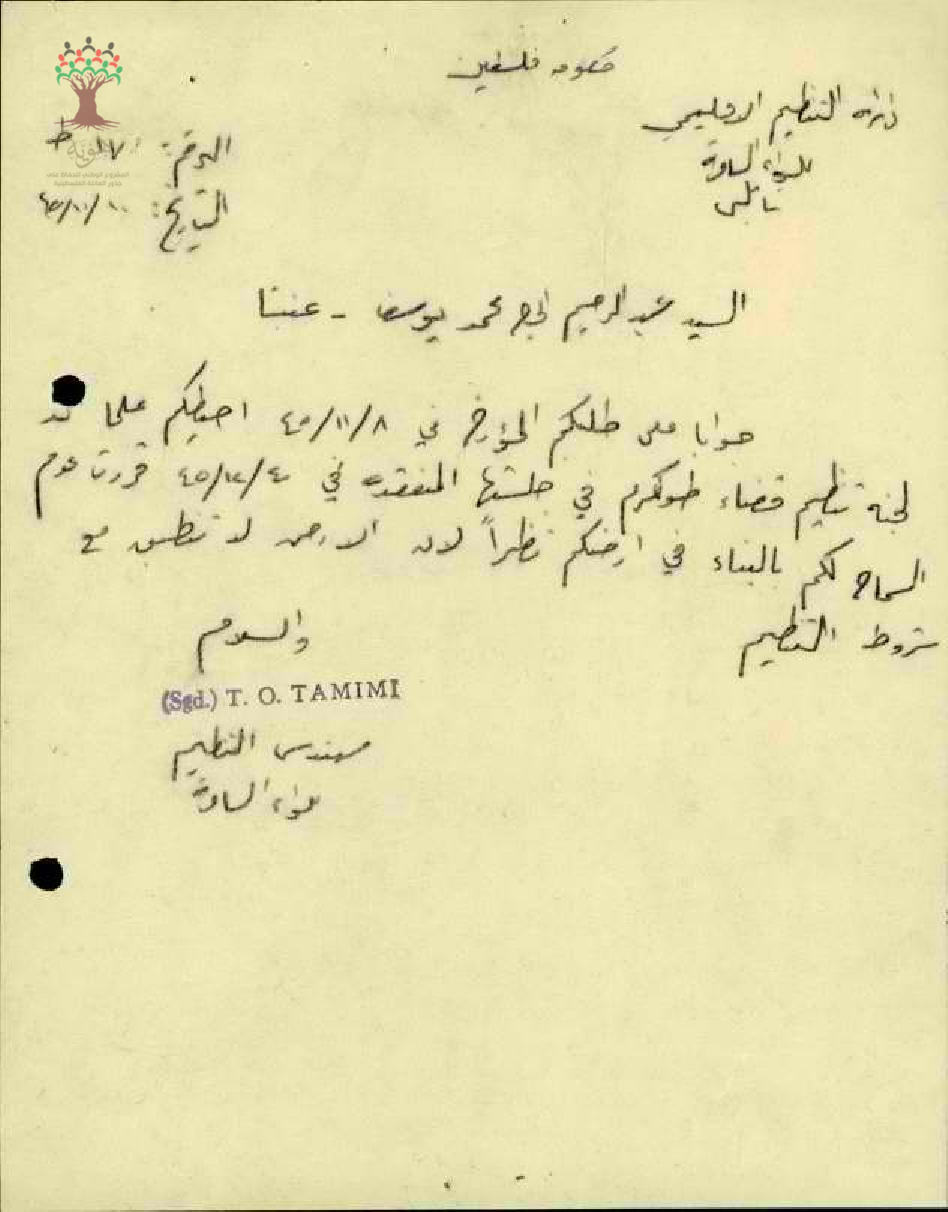 حكومة فلسطين
دائرة التنظيم الاقليمي
بلواء السامرة
نابلس
الرقم: ط
التاريخ:
السيد عبد الرحيم الحاج محمد يوسف - عنبتا
جوابا على طلبكم المؤرخ في ٤٥/١١/٨ احيطكم علما ان
لجنة تنظيم قضاء طولكرم في جلستها المنعقده في قررت عدم
السماح لكم بالبناء في ارضكم نظراً لان الارض لا تنطبق مع
شروط التنظيم
والسلام
(Sgd.) T. O. TAMIMI
مهندس التنظيم
بلواء السامرة